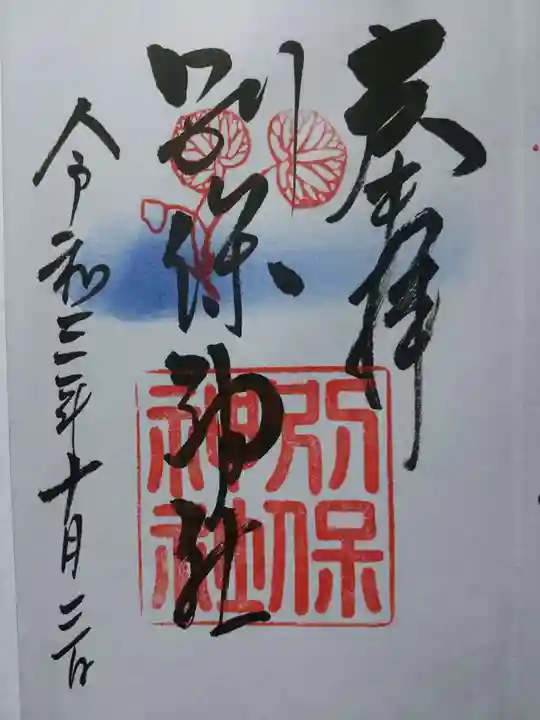 奉拝
別保神社
別保
神社
令和三年十月二日